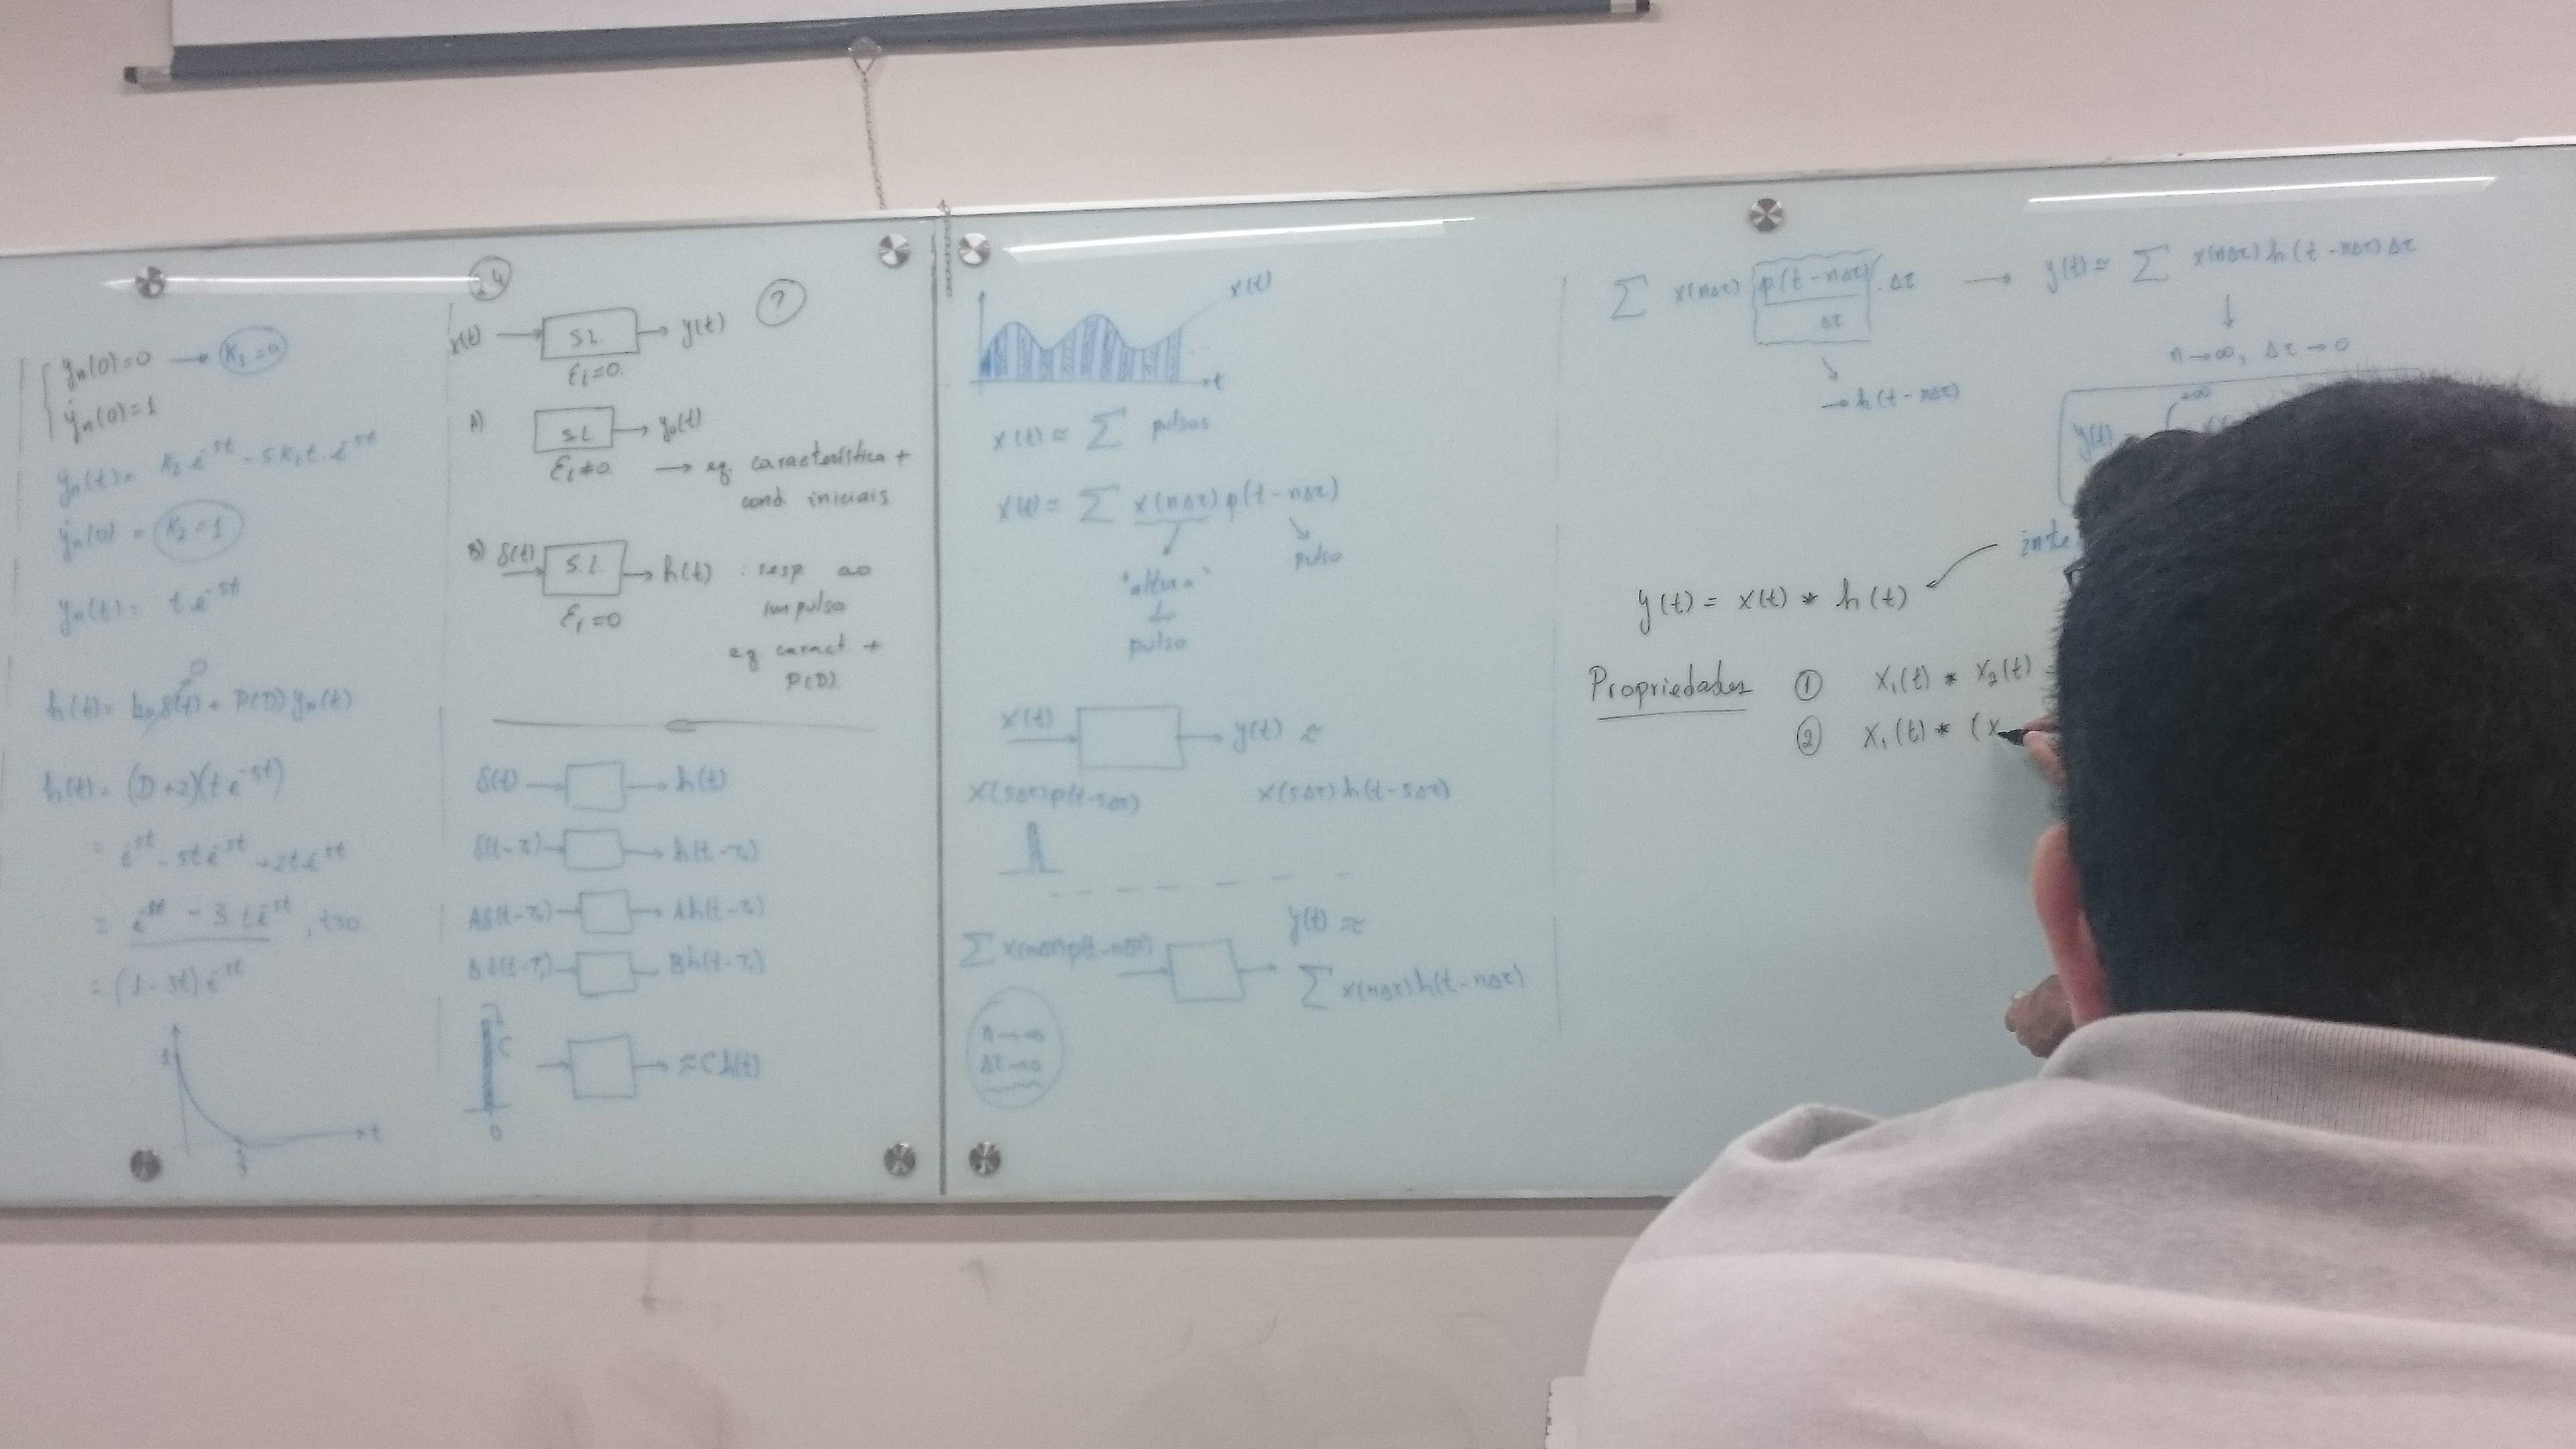 ẏn(0)=0 → K₁=0
ẏn(0)=1
ẏn(0) = K₂=1
yn(t) = t e^-5t
h(t) = bn δ(t) + P(D) yn(t)
0
h(t) = (D+2)(t e^-5t)
= e^-5t - 5t e^-5t + 2t e^-5t
= e^-5t - 3 t e^-5t , t≥0
= (1-3t) e^-5t
1
t
2.4
x(t) → S.L. → y(t) ?
Ei=0
A) S.L → y₀(t)
Ei≠0 → eq. característica +
cond iniciais
B) δ(t) S.L. → h(t) : resp ao
Ei=0 impulso
eq caract +
P(D)
δ(t) → → h(t)
→ h(t-τ₀)
Aδ(t-τ₀) → → Ah(t-τ₀)
→ Bh(t-τ₁)
C → → ≈ C h(t)
0
x(t)
t
x(t) ≈ Σ pulsos
x(t) ≈ Σ x(nΔτ) p(t-nΔτ)
"altura" pulso
do
pulso
x(t) → y(t) ≈
x(5Δτ)p(t-5Δτ) x(5Δτ)h(t-5Δτ)
y(t) ≈
Σ x(nΔτ)p(t-nΔτ) → → Σ x(nΔτ)h(t-nΔτ)
n→∞
Δτ→0
Σ x(nΔτ) p(t-nΔτ)/Δτ . Δτ → y(t) ≈ Σ x(nΔτ) h(t-nΔτ) Δτ
n→∞, Δτ→0
→ h(t-nΔτ)
y(t)
+∞
y(t) = x(t) * h(t)
Propriedades ① x₁(t) * x₂(t)
② x₁(t) * (x